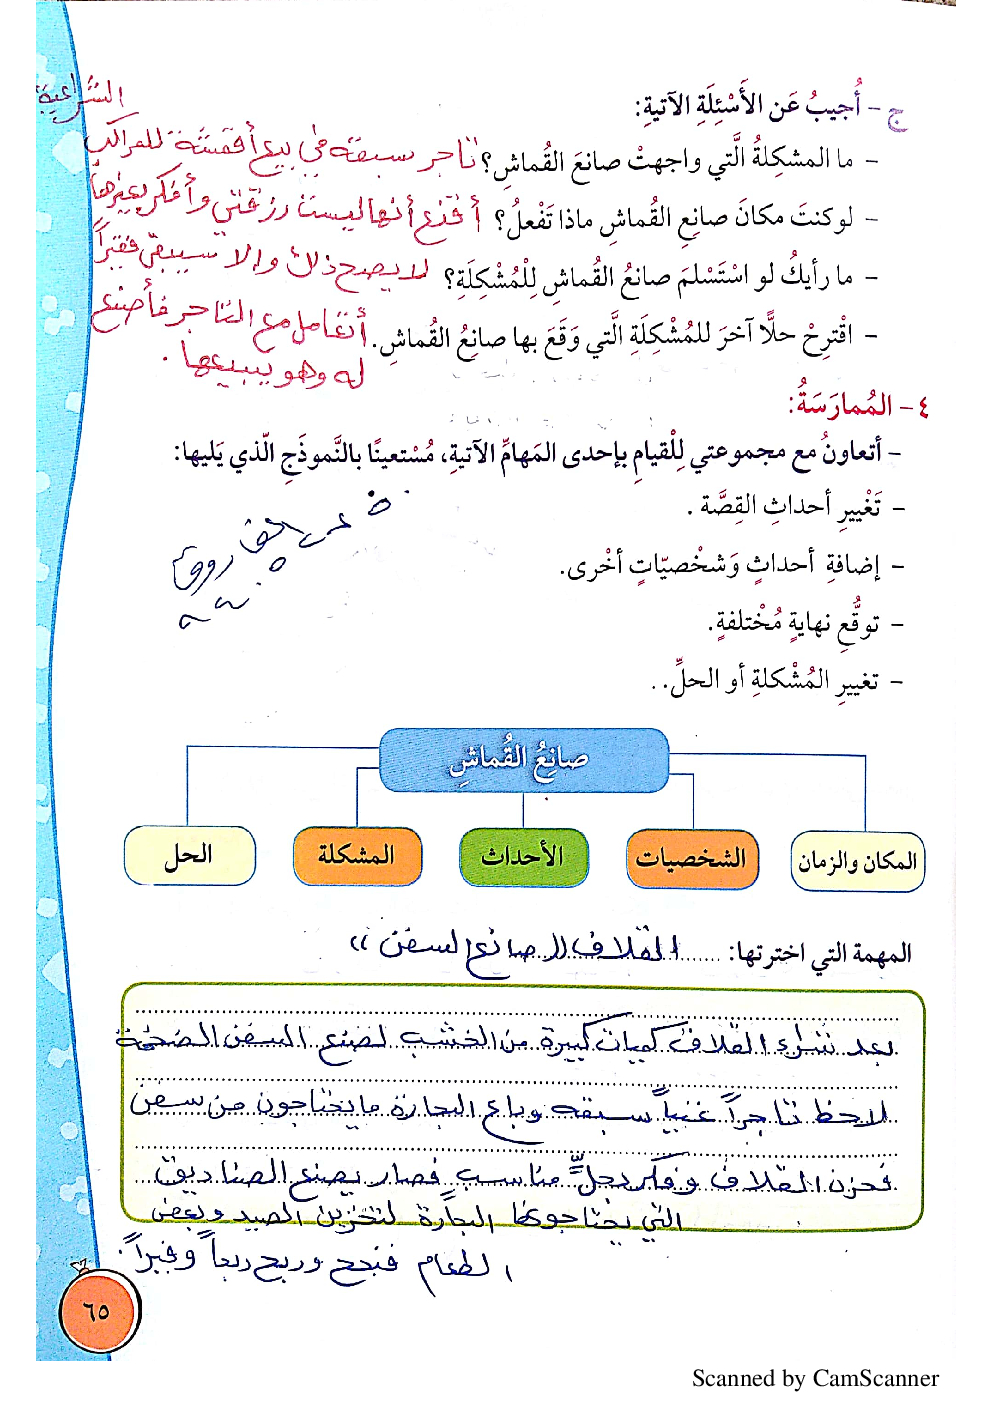 ج - أُجيبُ عَن الأَسْئِلَةِ الآتيةِ:
الشراعية
- ما المشكلةُ الَّتي واجهتْ صانعَ القُماشِ؟ تاجر سبقه في بيع أقمشة للمراكب
- لو كنتَ مكانَ صانعِ القُماشِ ماذا تَفْعلُ؟ أقنع أنها ليست رزقتي وأفكر بغيرها
- ما رأيكُ لو اسْتَسْلمَ صانعُ القُماشِ لِلْمُشْكِلَةِ؟ لا يصح ذلك وإلا سيبقى فقيراً
- اقْترِحْ حلًّا آخرَ للمُشْكِلةِ الَّتي وَقَعَ بها صانِعُ القُماشِ. أتعامل مع التاجر فأصنع
له وهو يبيعها .
٤ - المُمارَسَةُ:
- أتعاونُ مع مجموعتي لِلْقيامِ بإحدى المَهامِّ الآتيةِ، مُسْتعينًا بالنَّموذَجِ الّذي يَليها:
- تَغْييرِ أحداثِ القِصَّة .
- إضافةِ أحداثٍ وَشخْصيّاتٍ أخْرى.
- توقُّعِ نهايةٍ مُخْتلفةٍ.
- تغييرِ المُشْكلةِ أو الحلِّ..
صانِعُ القُماشِ
المكان والزمان
الشخصيات
الأحداث
المشكلة
الحل
المهمة التي اخترتها: القلاف "صانع السفن"
بعد شراء القلاف كميات كبيرة من الخشب لصنع السفن الضخمة
لاحظ تاجراً غنياً سبقه وباع البحارة ما يحتاجون من سفن
فحزن القلاف وفكر بحلٍّ مناسب فصار يصنع الصناديق
التي يحتاجونها البحارة لتخزين الصيد وبعض
الطعام فنجح وربح ربحاً وفيراً.
٦٥
Scanned by CamScanner